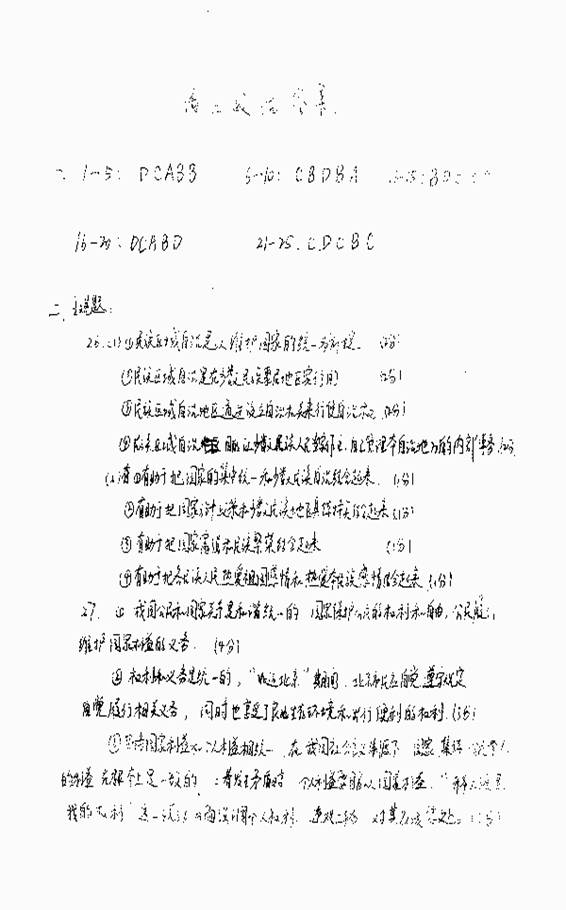 高二政治答案
一、1-5: DCABB 6-10: CBDBA 11-15: BD
16-20: DCABD 21-25. CDCBC
二、主观题:
26.(1)①民族区域自治是以维护国家的统一为前提. (2分)
②民族区域自治是在少数民族聚居地区实行的 (2分)
③民族区域自治地区通过设立自治机关来行使自治权 (2分)
④民族区域自治 保证少数民族人民当家作主,自主管理本自治地方的内部事务(2分)
(2)答①有助于把国家的集中统一和少数民族自治结合起来. (1分)
②有助于把国家方针政策和少数民族地区具体特点结合起来(1分)
③有助于把国家富强和民族繁荣结合起来 (1分)
④有助于把各民族人民热爱祖国感情和热爱本民族感情结合起来(1分)
27. ① 我国公民和国家关系是和谐统一的 国家保护公民的权利和自由,公民履行
维护国家利益的义务. (4分)
② 权利和义务是统一的,“ 北京”期间,北京市民应自觉遵守规定
自觉履行相关义务,同时也享受了良好生态环境和出行便利的权利.(3分)
③ 国家利益和个人利益相统一. 在我国社会主义制度下 国家、集体 个人
的利益在根本上是一致的 ;当发生矛盾时 个人利益要服从国家利益.“
我的权利”这一 强调个人权利